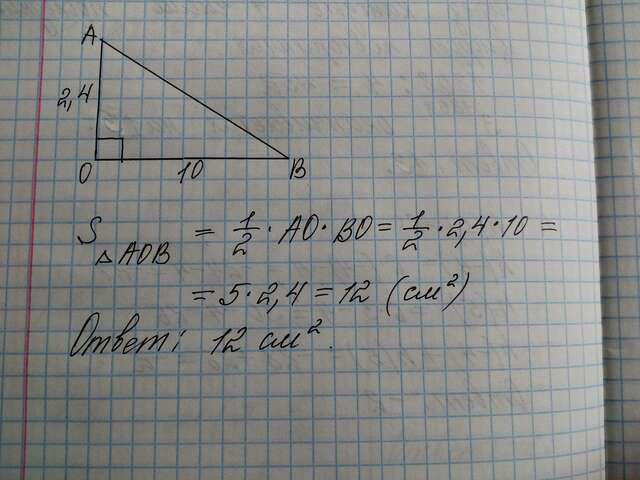 A
2,4
O
10
B
S △AOB = 1/2 · AO · BO = 1/2 · 2,4 · 10 =
= 5 · 2,4 = 12 (см²)
Ответ: 12 см².